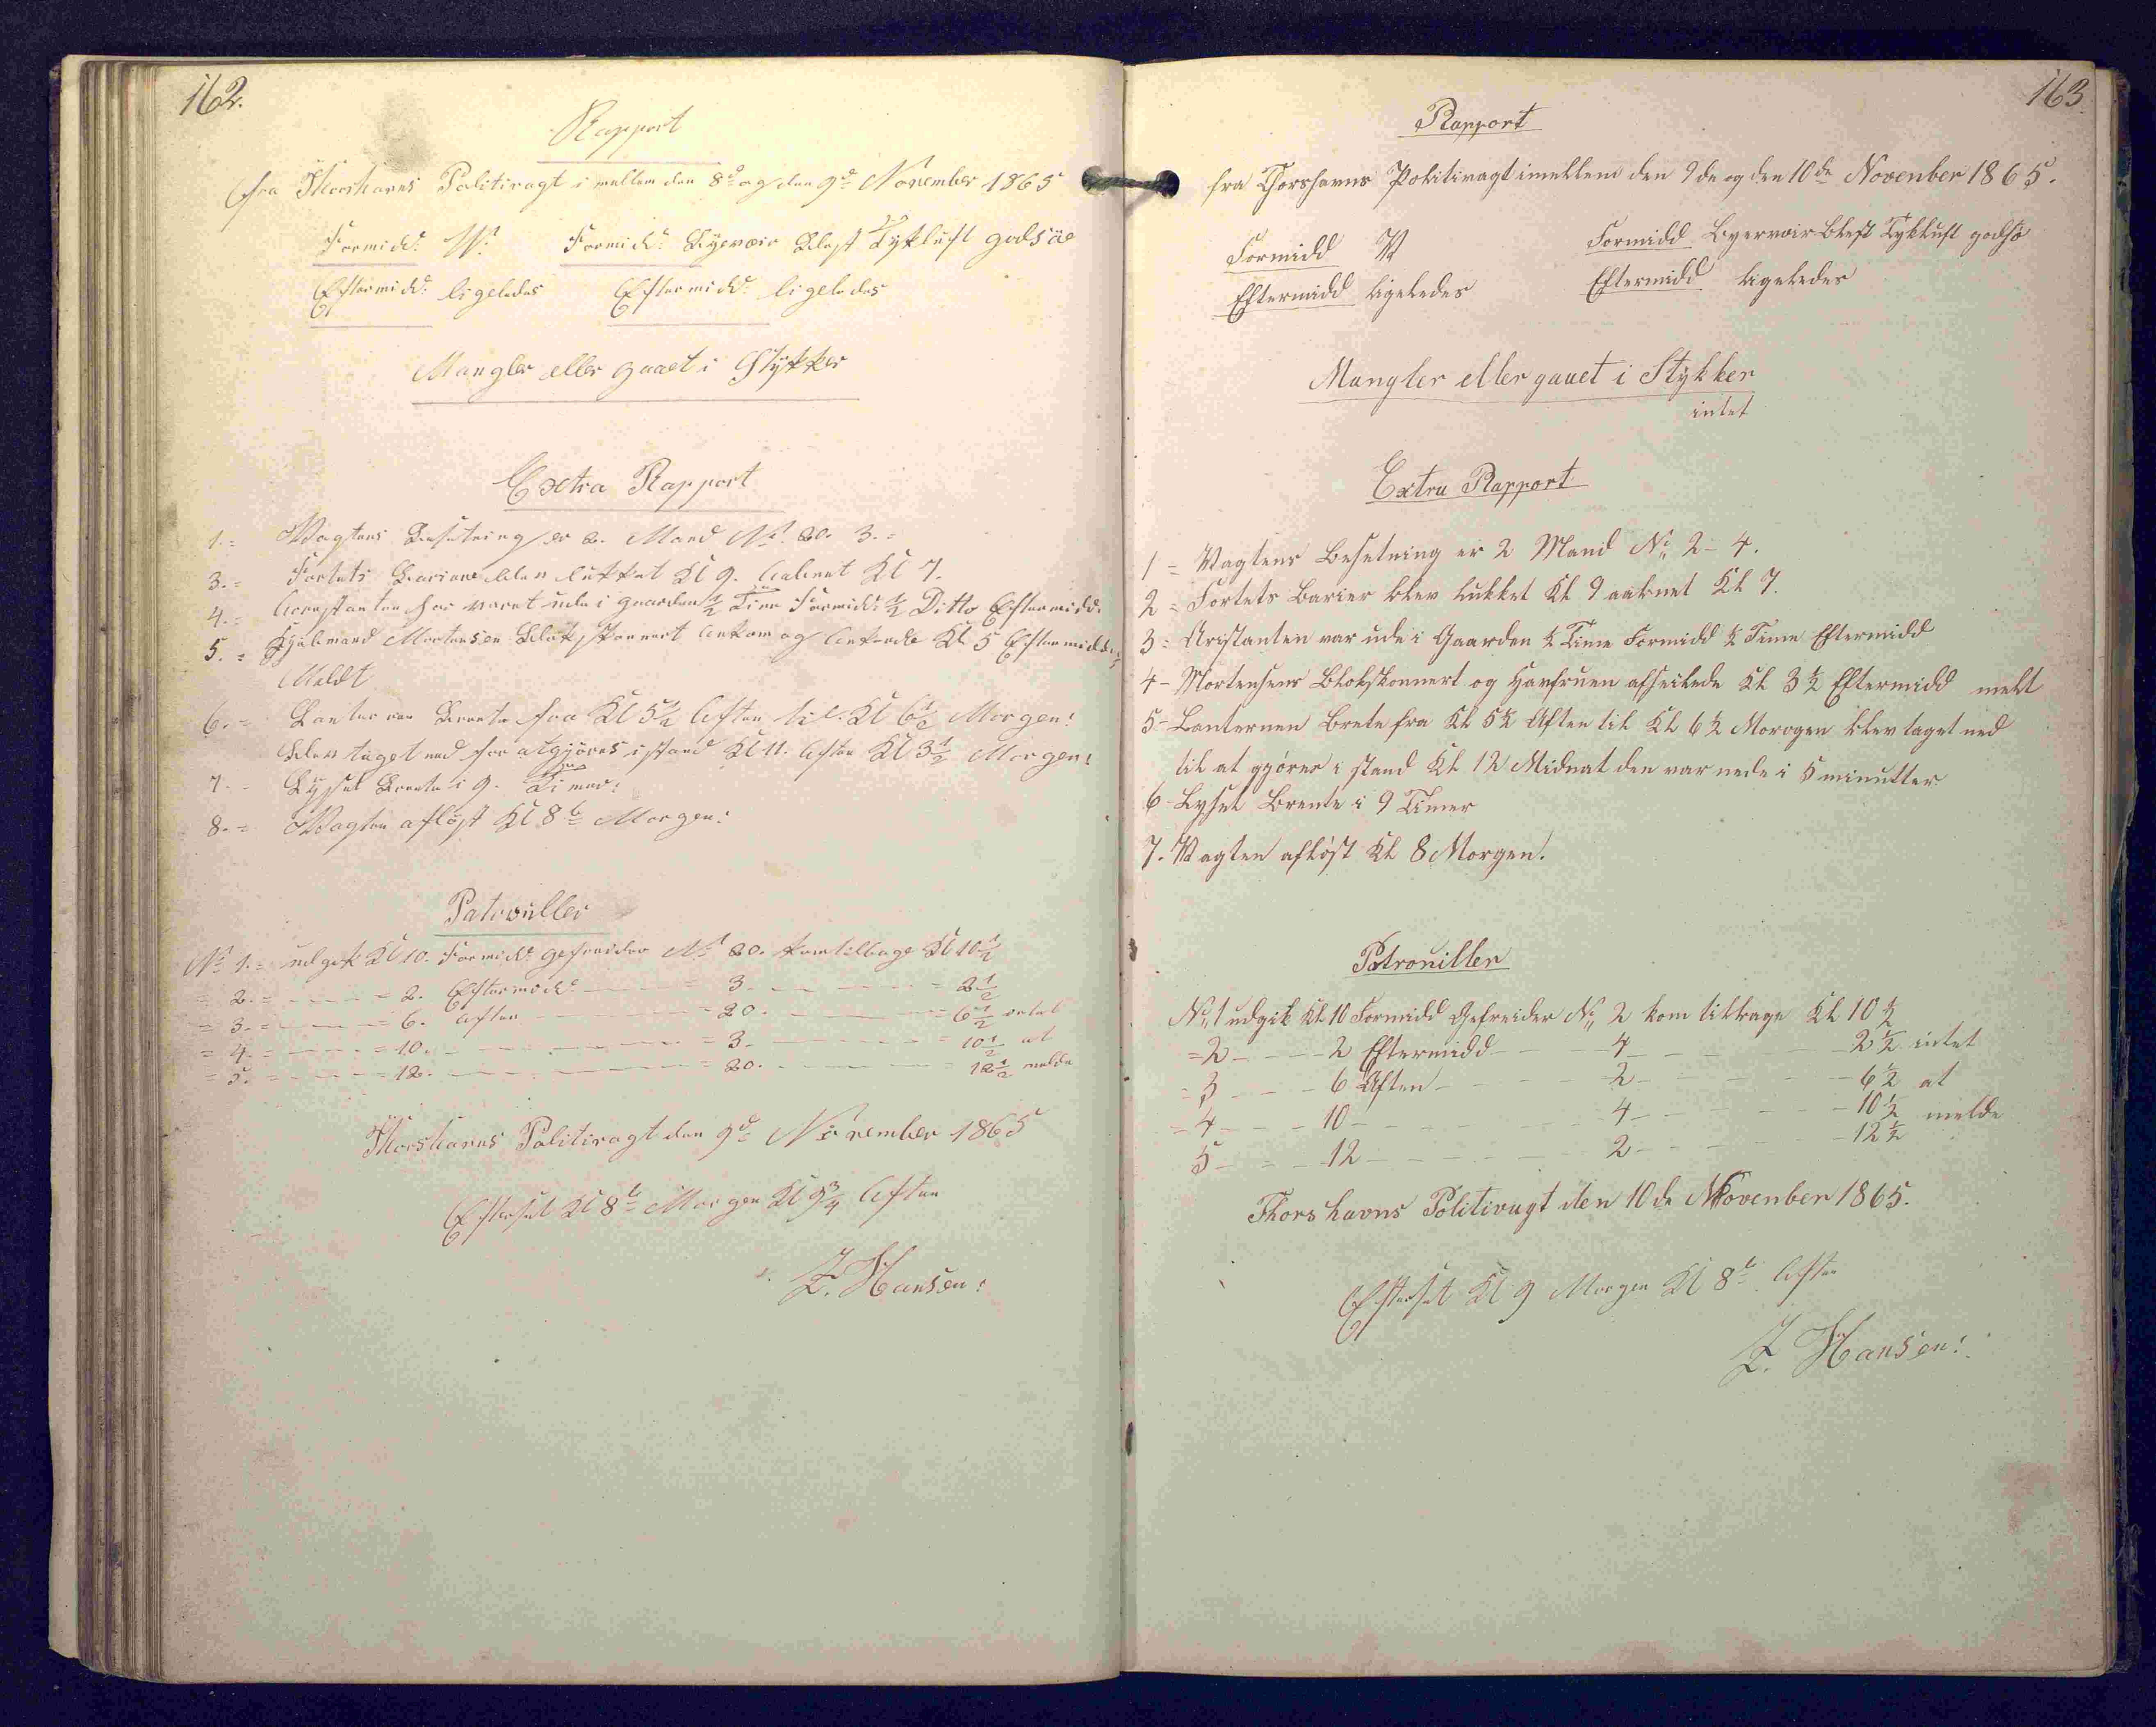 162.
Rapport
fra Thorshavns Politivagt i mellem den 8d og den 9d November 1865
Formidd: W. Formidd: Bygevær Blæst Tykluft godsöe
Eftermidd: ligeledes Eftermidd: ligeledes
Mangler eller gaaet i Stykker
Extra Rapport
1.= Vagtens Besetning er 2. Mand No 20. 3.=
3.= Fortets Bariere blev lukket Kl 9. aabnet Kl 7.
4.= Arrestanten har været ude i gaarden 1/2 Time Formidd: 1/2 Ditto Eftermidd:
5.= Mortensen Ankom og Ankrede Kl 5 Eftermidd:
Meldt
6.= Lanternen Brente fra Kl 5 1/2 Aften til Kl 6 1/2 Morgen:
blev taget ned for at gjöres i stand Kl 11. Aften Kl 3 1/2 Morgen:
7.- Lyset Brente i 9. Timer:
8.= Vagten aflöst Kl 8 Morgen:
Patrouller
No 1.= udgik Kl 10. Formidd: gefreider No 20. kom tilbage Kl 10 1/2
= 2.= - - - = 2. Eftermidd: - - = 3. - - - = 2 1/2
= 3.= - - - = 6. Aften - - = 20. - - - = 6 1/2 intet
= 4.= - - - = 10. - - - = 3. - - - = 10 1/2 at
= 5.= - - - = 12. - - - = 20. - - - = 12 1/2 melde
Thorshavns Politivagt den 9d November 1865
Efterset Kl 8 Morgen Kl 9 3/4 Aften
Z. Hansen:
163
Rapport
fra Thorshavns Politivagt imellem den 9de og den 10de Novenber 1865.
Formidd W Formidd Byervair Blest Tykluft godsö
Eftermidd ligeledes Eftermidd ligeledes
Mangler eller gaaet i Stykker
intet
Extra Rapport
1 = Vagtens Besetning er 2 Mand No 2 - 4.
2 = Fortets Barier blev lukket Kl 9 aabnet Kl 7.
3 = Aristanten var ude i Gaarden 1/2 Time Formidd 1/2 Time Eftermidd
4 - Mortensens Blokskonnert og Havfruen afseilede Kl 3 1/2 Eftermidd melt
5 - Lanternen Brente fra Kl 5 1/2 Aften til Kl 6 1/2 Morogen blev taget ned
til at gjörer i stand Kl 12 Midnat den var nede i 5 minutter
6 - Lyset Brente i 9 Timer
7. Vagten aflöst Kl 8 Morgen.
Patrouiller
No 1 udgik Kl 10 Formidd Gefreider No 2 kom tilbage Kl 10 1/2
= 2 - - - 2 Eftermidd - - 4 - - - 2 1/2 intet
= 3 - - - 6 Aften - - - 2 - - - 6 1/2 at
= 4 - - - 10 - - - 4 - - - 10 1/2 melde
5 - - - 12 - - - 2 - - - 12 1/2
Thorshavns Politivagt den 10de Novenber 1865.
Efterset Kl 9 Morgen Kl 8 Aften
Z. Hansen: